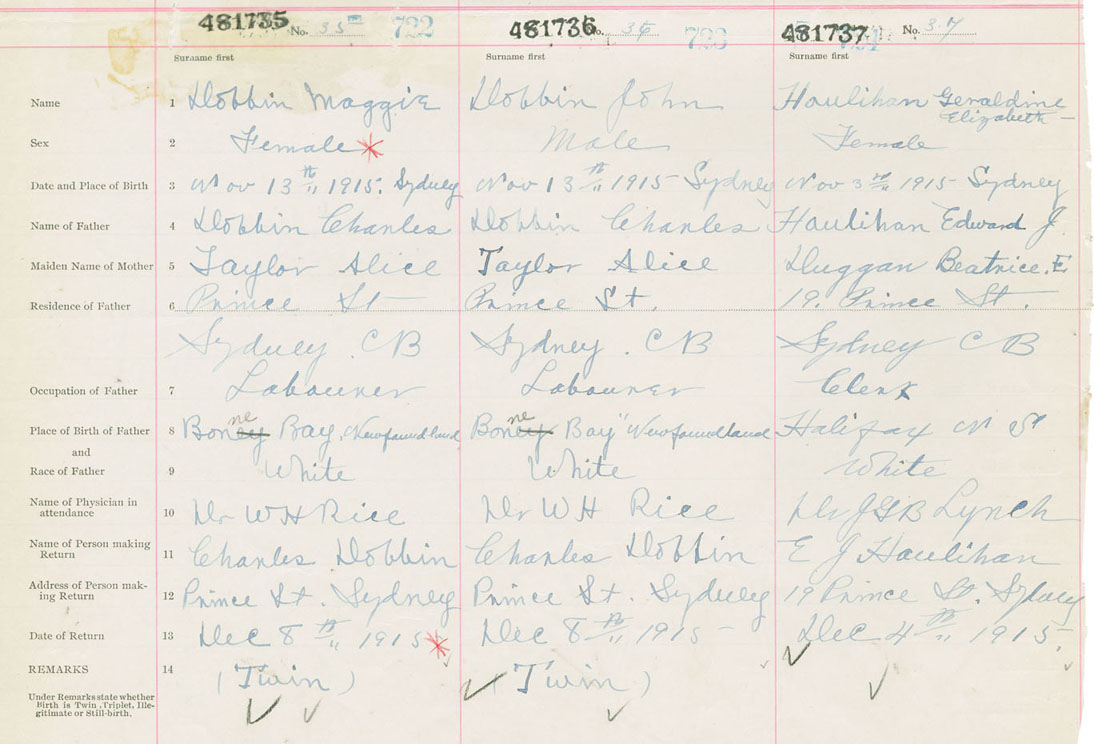 481735 No. 35 722 481736 No. 36 723 481737 No. 37
Surname first Surname first Surname first
Name 1 Dobbin Maggie Dobbin John Houlihan Geraldine
Elizabeth
Sex 2 Female * Male Female
Date and Place of Birth 3 Nov 13th 1915. Sydney Nov 13th 1915 Sydney Nov 3rd 1915 Sydney
Name of Father 4 Dobbin Charles Dobbin Charles Houlihan Edward J
Maiden Name of Mother 5 Taylor Alice Taylor Alice Duggan Beatrice. E
Residence of Father 6 Prince St Prince St. 19. Prince St.
Sydney. CB Sydney. CB Sydney CB
Occupation of Father 7 Labourer Labourer Clerk
ne ne
Place of Birth of Father 8 Boney Bay, Newfoundland Boney Bay" Newfoundland Halifax
and
Race of Father 9 White White White
Name of Physician in
attendance 10 Dr WH Rice Dr WH Rice Dr JGB Lynch
Name of Person making
Return 11 Charles Dobbin Charles Dobbin E J Houlihan
Address of Person mak-
ing Return 12 Prince St. Sydney Prince St. Sydney 19 Prince St. Sydney
Date of Return 13 Dec 8th 1915 * Dec 8th 1915 Dec 4th 1915
REMARKS 14 (Twin) (Twin)
Under Remarks state whether
Birth is Twin, Triplet, Ille-
gitimate or Still-birth.